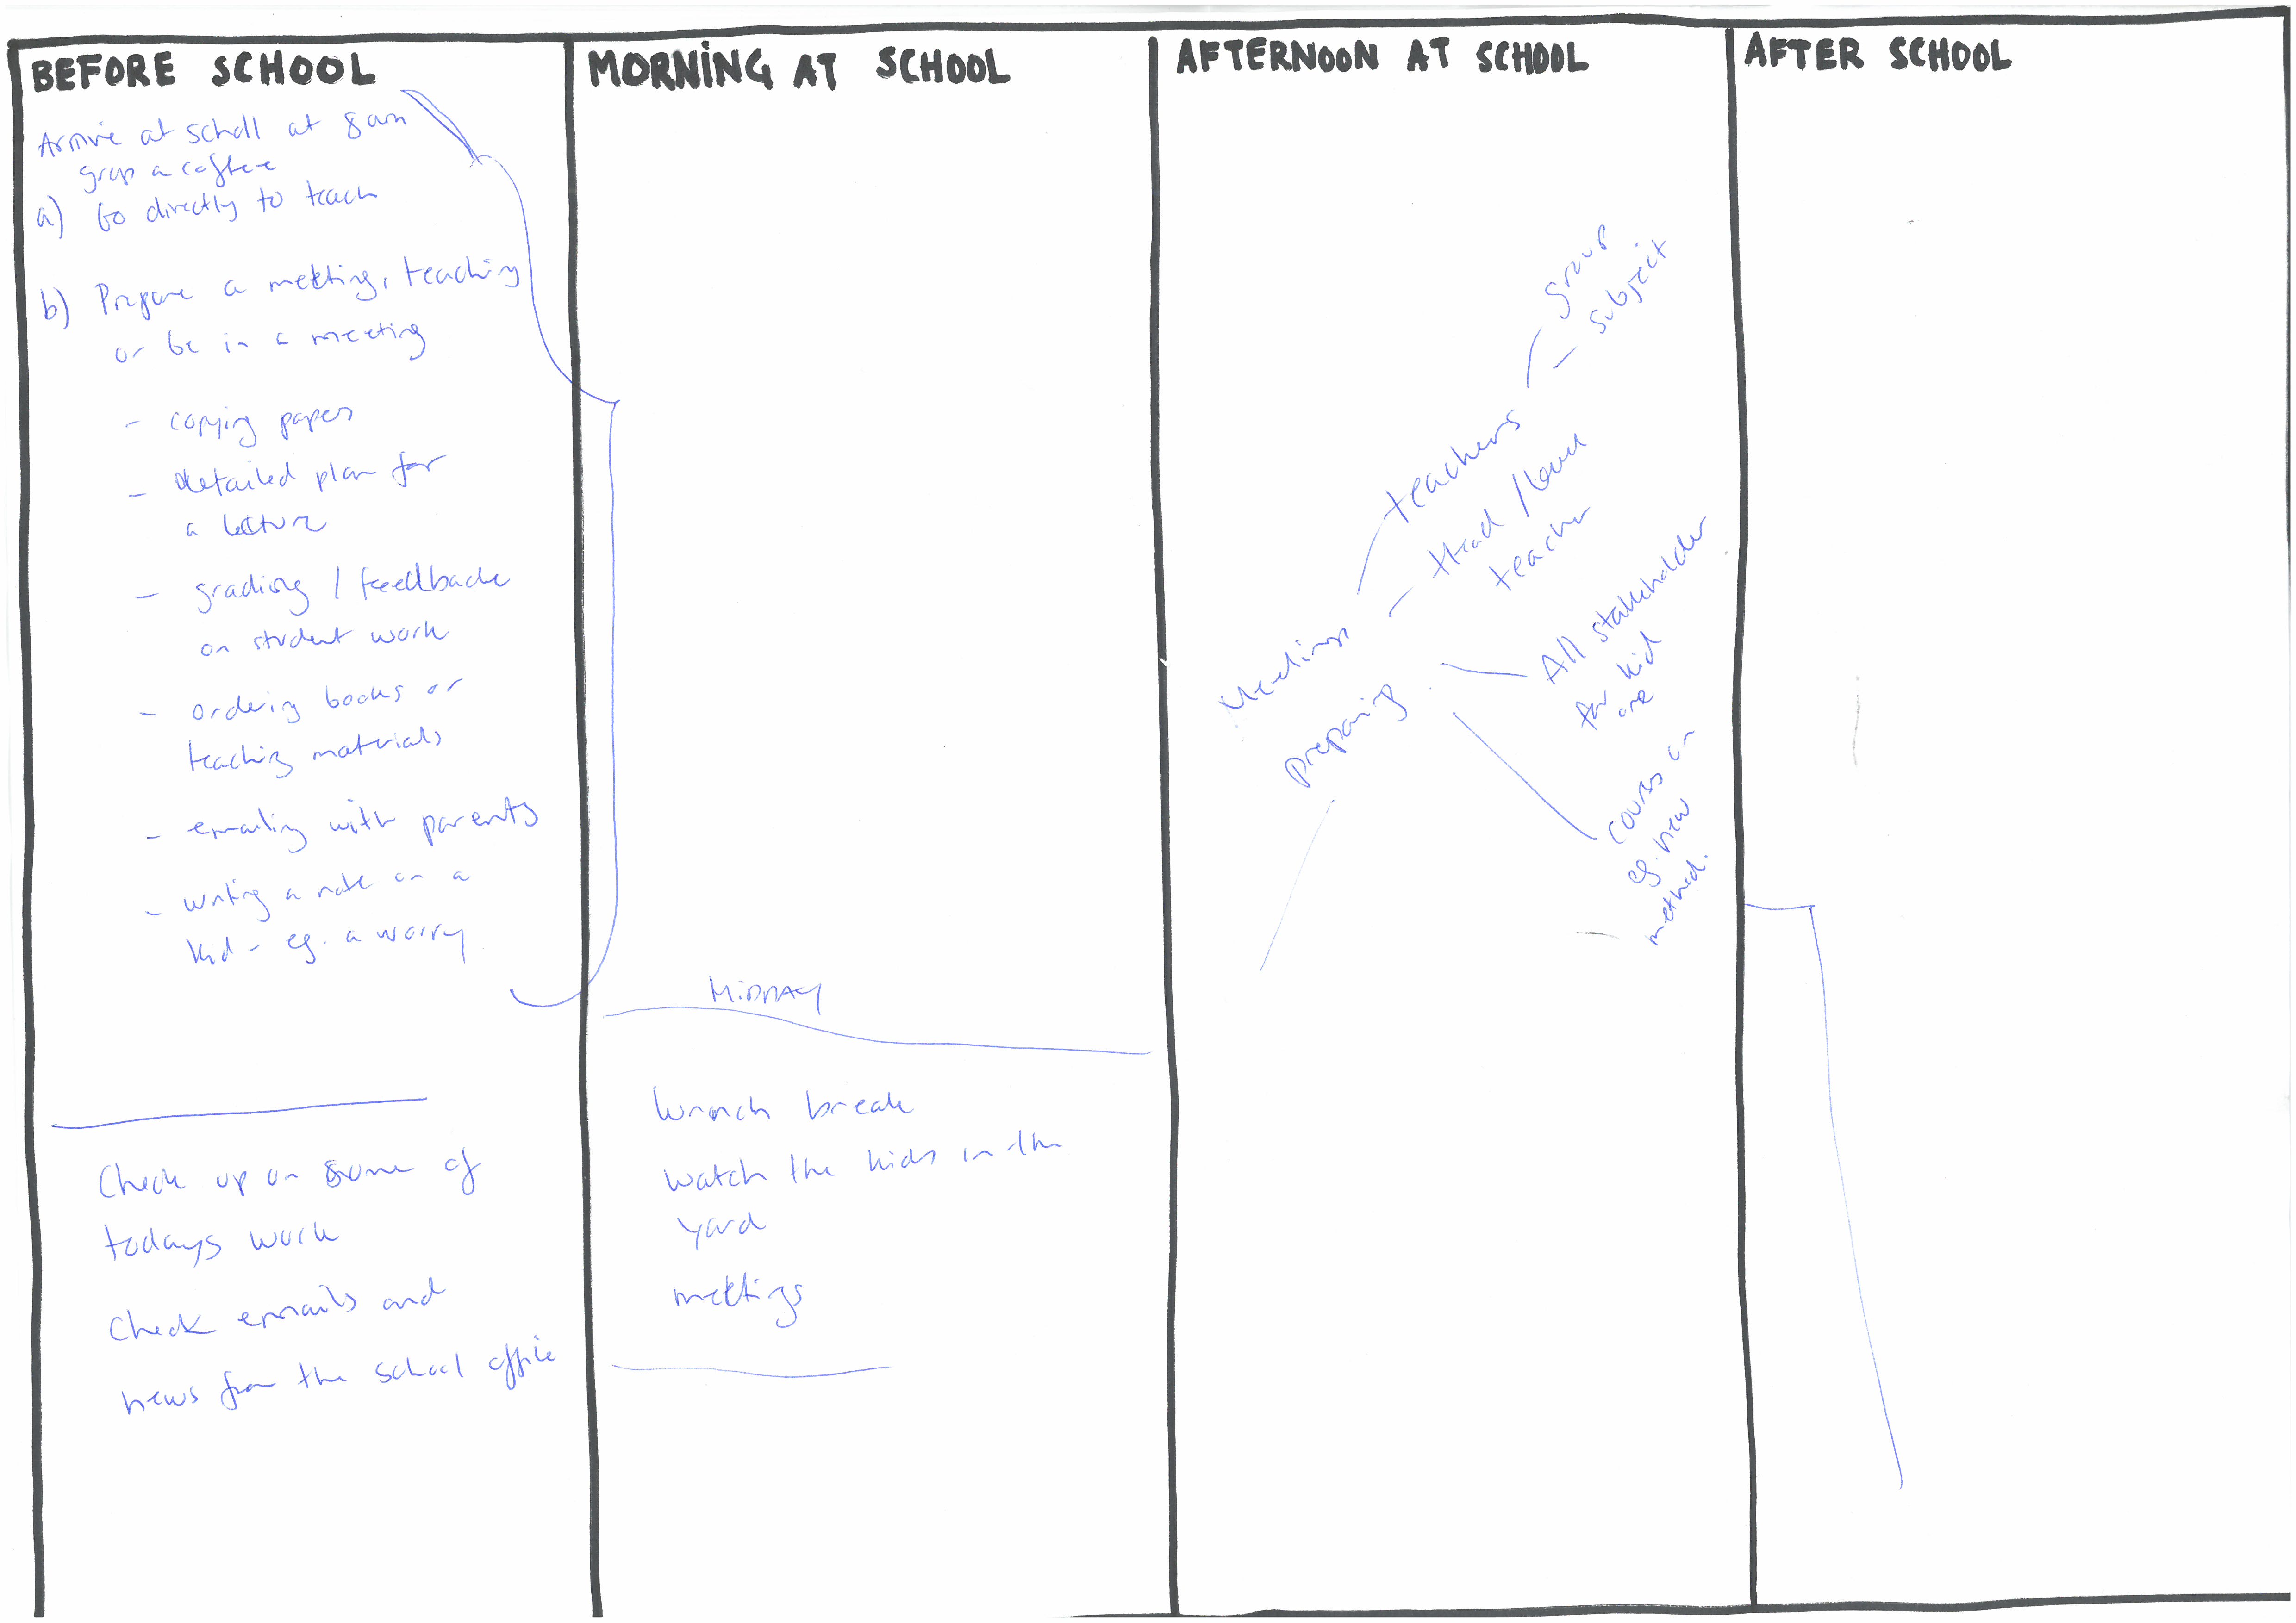 BEFORE SCHOOL
Arrive at scholl at 8am
grap a coffee
a) Go directly to teach
b) Prepare a metting, teaching
or be in a meeting
- copying papers
- detailed plan for
a lecture
- grading / feedback
on student work
- ordering books or
teaching materials
- emailing with parents
- writing a note on a
kid - eg. a worry
Check up on some of
todays work
Check emails and
news from the school office
MORNING AT SCHOOL
MIDDAY
break
watch the kids in the
yard
mettings
AFTERNOON AT SCHOOL
Meetings
Preparing
teachers
group
subject
Head / level
teacher
All stakeholder
for kid
one
courses on
eg. new
method.
AFTER SCHOOL